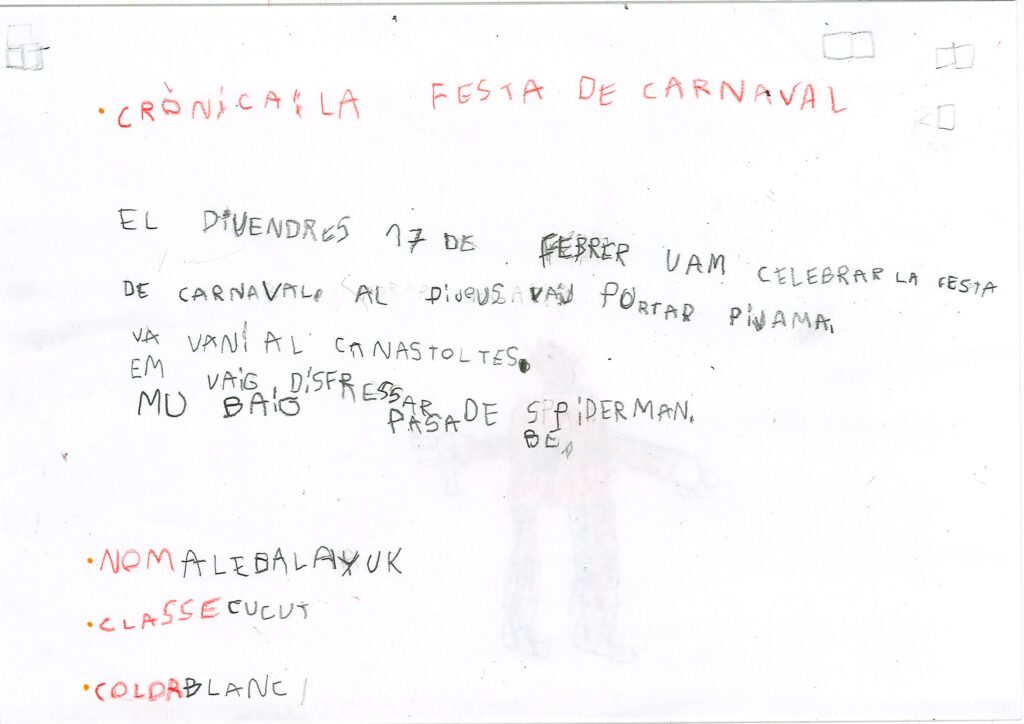 • CRÒNiCA: LA FESTA DE CARNAVAL
EL DiVENDRES 17 DE FEBRER VAM CELEBRAR LA FESTA
DE CARNAVAL. AL PORTAR PiJAMA.
VA VANÍ AL CANASTOLTES.
EM VAiG DiSFRESSAR DE SPiDERMAN.
MU BAiG PASA BE.
• NOM ALEBALAYUK
• CLASSE CUCUT
• COLOR BLANC